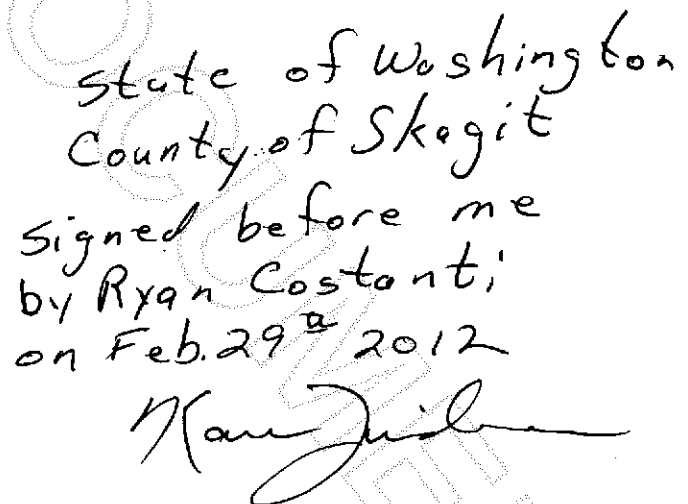 State of Washington
County of Skagit
signed before me
by Ryan Costanti
on Feb. 29th 2012